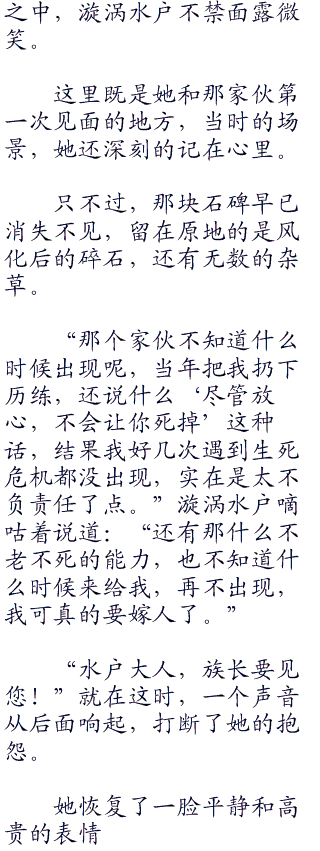 之中，漩涡水户不禁面露微
笑。
这里既是她和那家伙第
一次见面的地方，当时的场
景，她还深刻的记在心里。
只不过，那块石碑早已
消失不见，留在原地的是风
化后的碎石，还有无数的杂
草。
“那个家伙不知道什么
时候出现呢，当年把我扔下
历练，还说什么‘尽管放
心，不会让你死掉’这种
话，结果我好几次遇到生死
危机都没出现，实在是太不
负责任了点。”漩涡水户嘀
咕着说道：“还有那什么不
老不死的能力，也不知道什
么时候来给我，再不出现，
我可真的要嫁人了。”
“水户大人，族长要见
您！”就在这时，一个声音
从后面响起，打断了她的抱
怨。
她恢复了一脸平静和高
贵的表情